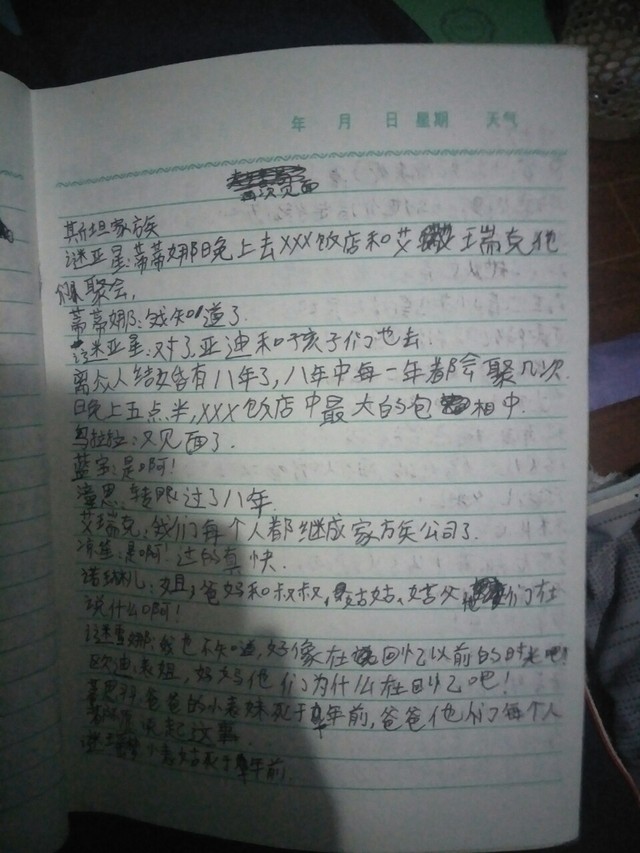 年 月 日 星期 天气
再次见面
斯坦家族
谜亚星:蒂蒂娜晚上去XXX饭店和艾瑞克他
们聚会,
蒂蒂娜:我知道了.
谜亚星:对了,亚迪和孩子们也去.
离众人结婚有八年了,八年中每一年都会聚几次.
晚上五点半,XXX饭店中最大的包相中.
乌拉拉:又见面了.
蓝宝:是啊!
潼恩:转眼过了八年.
艾瑞克:我们每个人都继成家族公司了.
是啊!过的真快.
诺纳儿:姐,爸妈和叔叔,姑姑、姑父他们在
说什么啊!
谜雪娜:我也不知道,好像在回忆以前的时光吧!
欧迪:表姐,妈妈他们为什么在回忆吧!
爸爸的小表妹死于年前,爸爸他们每个人
起这事
小表姑死于年前.